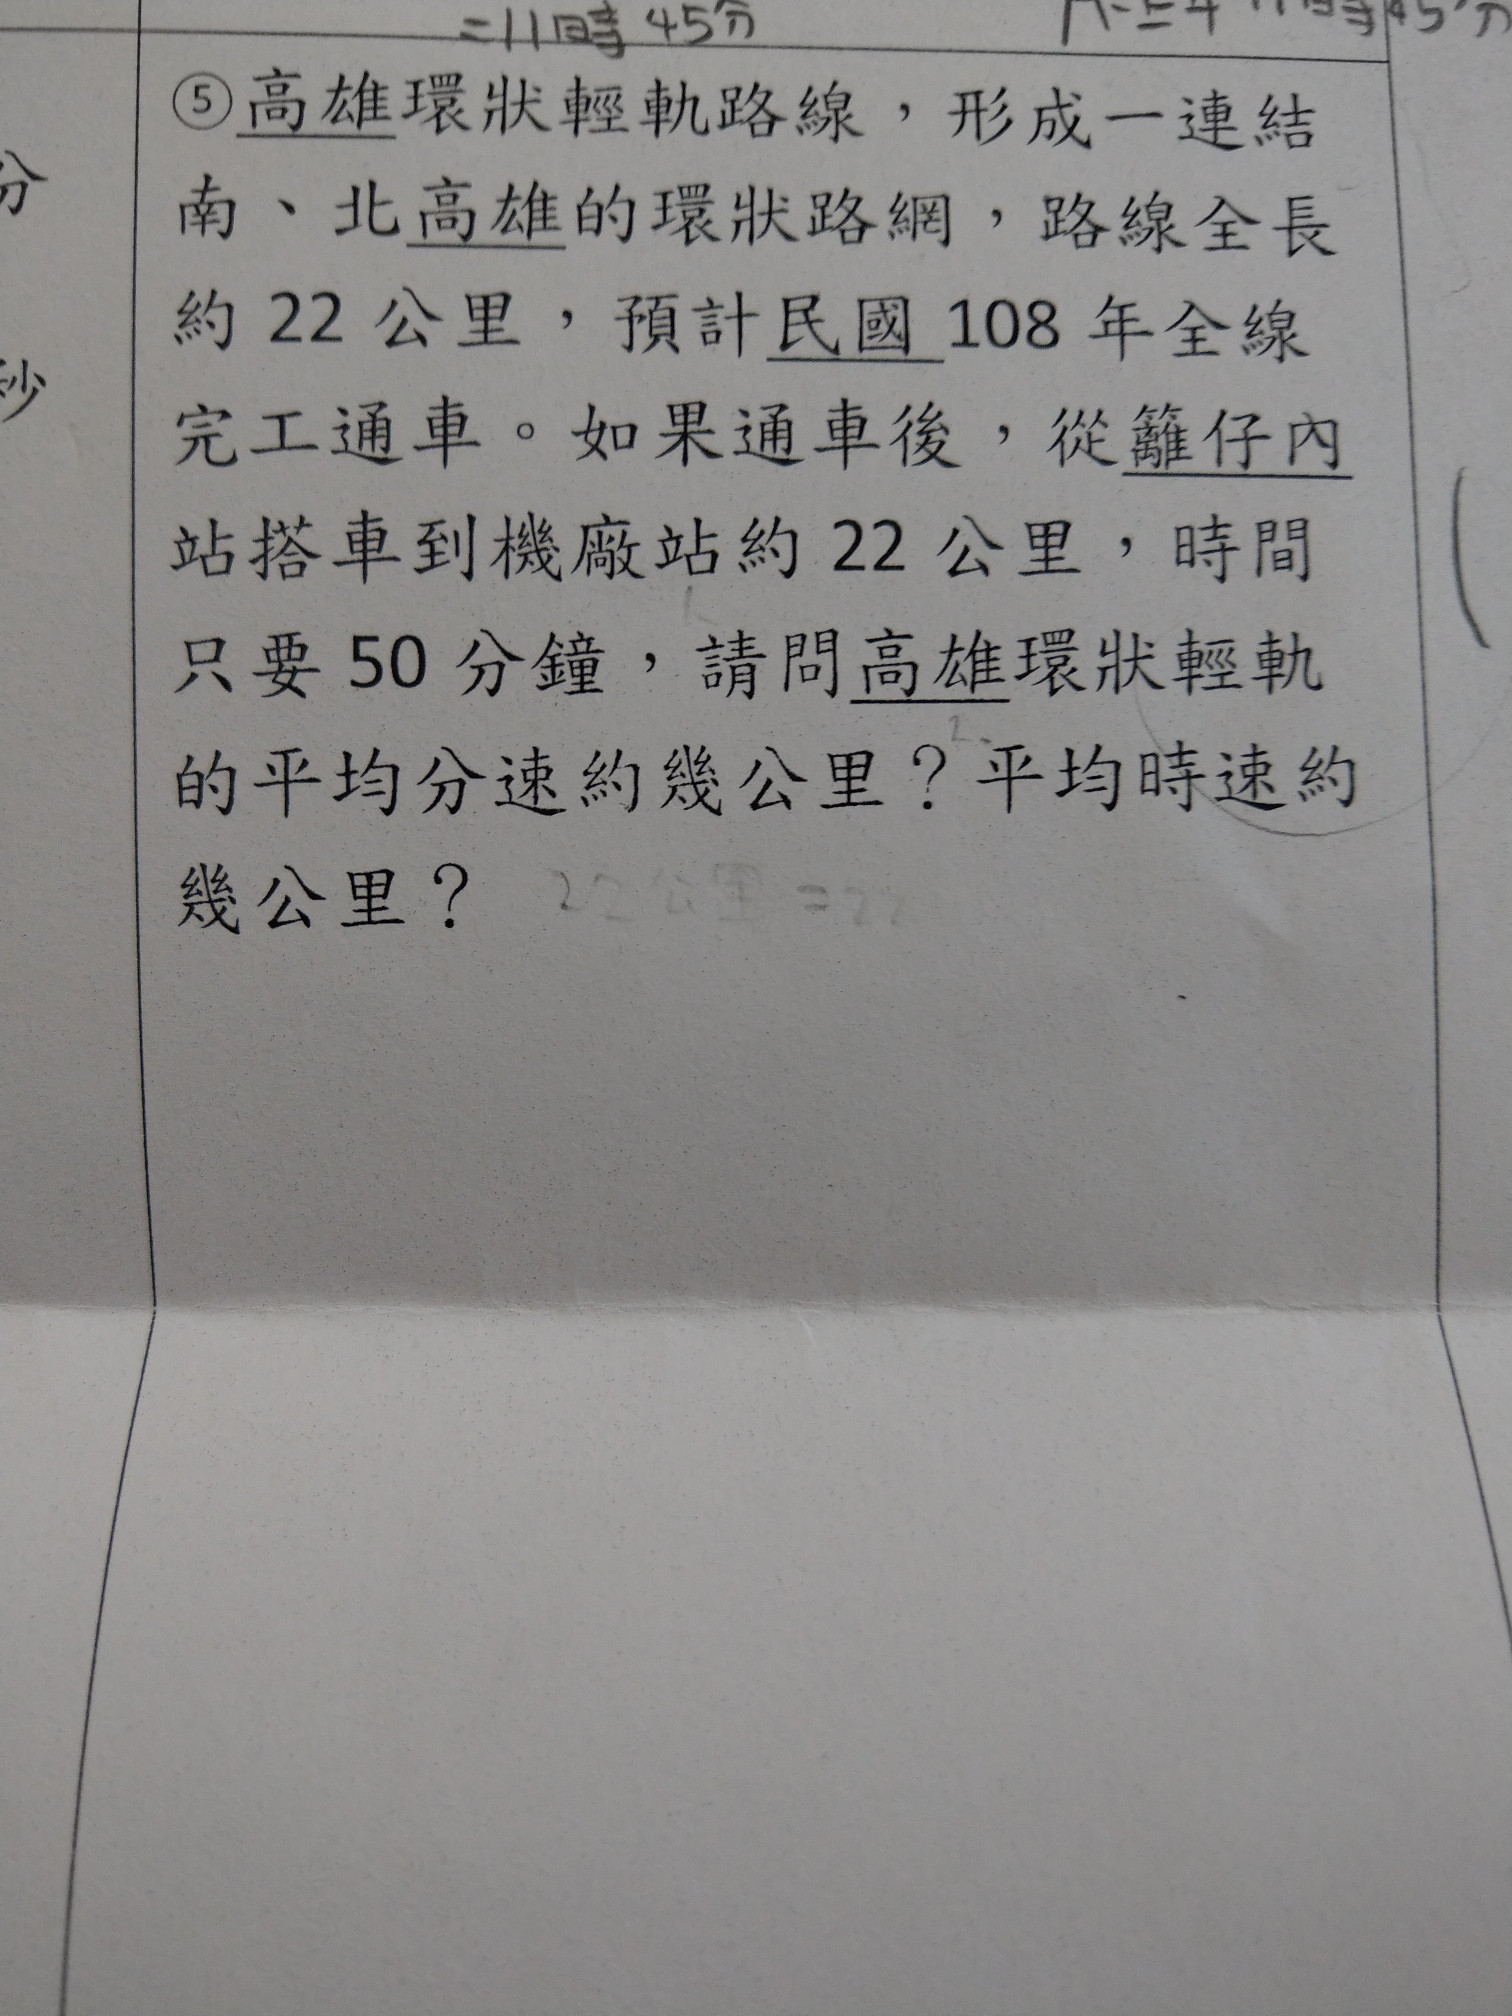 =11時45分
11時45分
⑤高雄環狀輕軌路線，形成一連結
分
南、北高雄的環狀路網，路線全長
約 22 公里，預計民國 108 年全線
秒
完工通車。如果通車後，從籬仔內
站搭車到機廠站約 22 公里，時間
只要 50 分鐘，請問高雄環狀輕軌
的平均分速約幾公里？平均時速約
幾公里？ 22公里=22